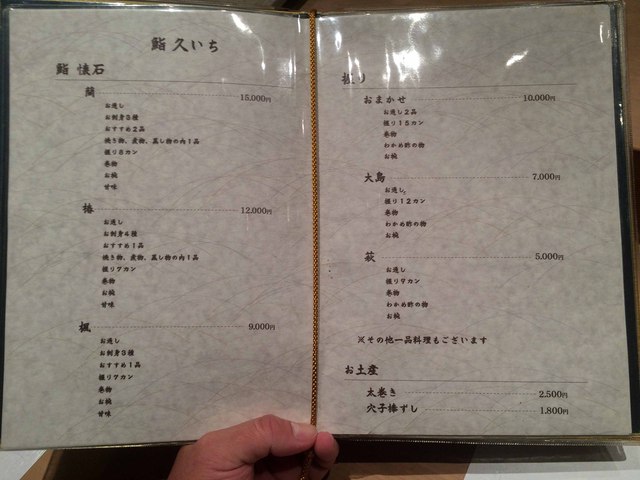 鮨 久いち
鮨 懐石
蘭 15,000円
お通し
お刺身5種
おすすめ2品
焼き物、煮物、蒸し物の内1品
握り8カン
巻物
お椀
甘味
椿 12,000円
お通し
お刺身4種
おすすめ1品
焼き物、煮物、蒸し物の内1品
握り7カン
巻物
お椀
甘味
楓 9,000円
お通し
お刺身3種
おすすめ1品
握り7カン
巻物
お椀
甘味
握り
おまかせ 10,000円
お通し2品
握り15カン
巻物
わかめ酢の物
お椀
大島 7,000円
お通し
握り12カン
巻物
わかめ酢の物
お椀
萩 5,000円
お通し
握り9カン
巻物
わかめ酢の物
お椀
※その他一品料理もございます
お土産
太巻き 2,500円
穴子棒ずし 1,800円